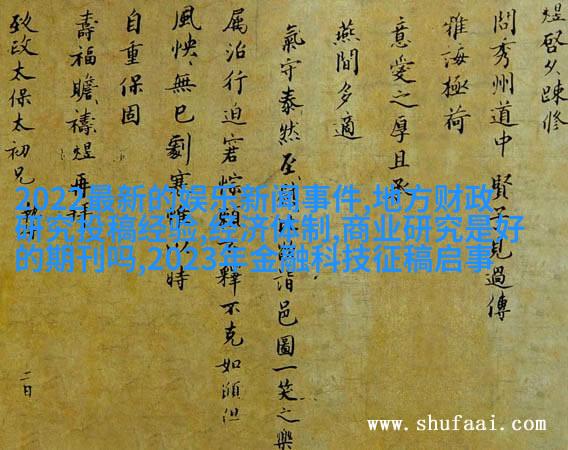 煜啓久疎修
問秀州道中賢子見過傳
雅誨極荷
意愛之厚且承
燕間多適
氣守泰然至詣邑圖一笑之樂
属治行迫窘釋不克如頎但
風怏無已劇寒惟以時
自重保固
壽福瞻禱煜再拜
致政太保太初兄
二日
2022最新的娱乐新闻事件,地方财政
研究投稿经验,经济体制,商业研究是好
的期刊吗,2023年金融科技征稿启事
www.shufaai.com